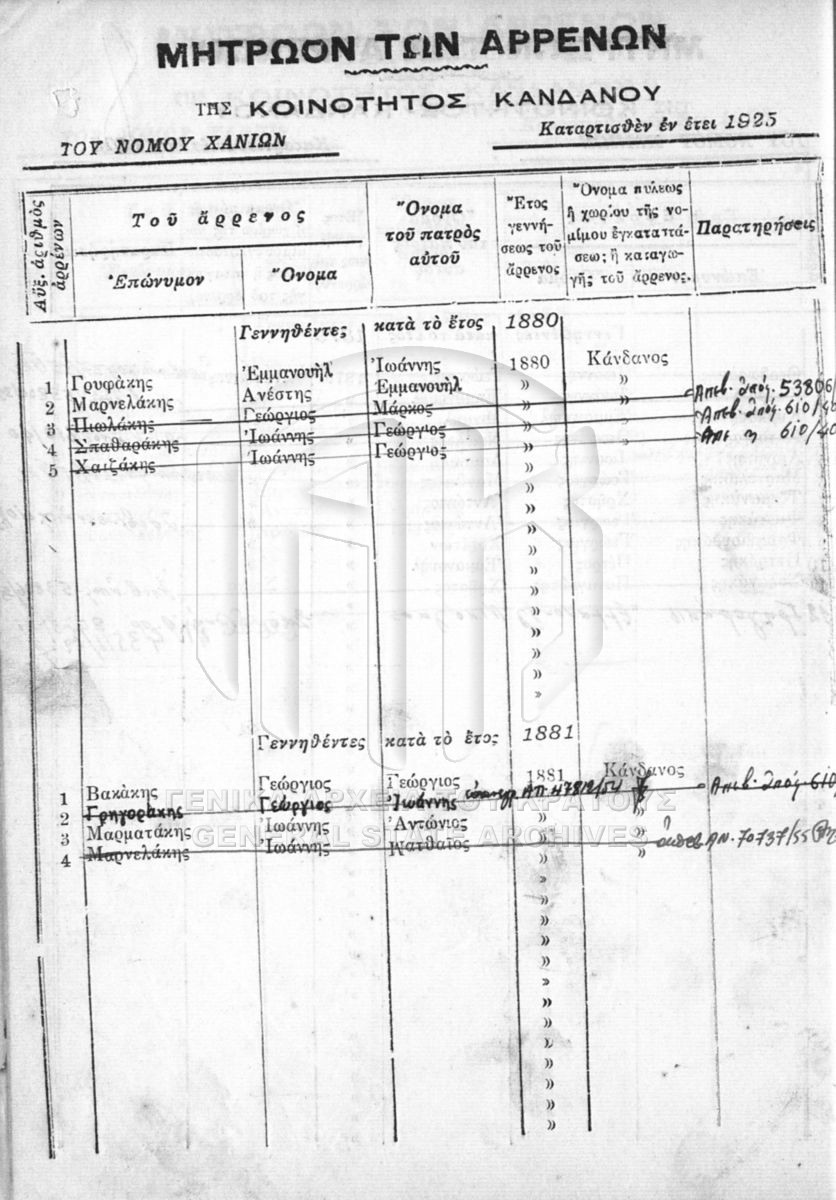 ΜΗΤΡΩΟΝ ΤΩΝ ΑΡΡΕΝΩΝ
ΤΗΣ ΚΟΙΝΟΤΗΤΟΣ ΚΑΝΔΑΝΟΥ
ΤΟΥ ΝΟΜΟΥ ΧΑΝΙΩΝ
Καταρτισθὲν ἐν ἔτει 1925
Αὔξ. ἀριθμὸς ἀρρένων
Τοῦ ἄρρενος
Ἐπώνυμον
Ὄνομα
Ὄνομα τοῦ πατρὸς αὐτοῦ
Ἔτος γεννήσεως τοῦ ἄρρενος
Ὄνομα πόλεως ἢ χωρίου τῆς νομίμου ἐγκαταστάσεως ἢ καταγωγῆς τοῦ ἄρρενος.
Παρατηρήσεις
Γεννηθέντες κατὰ τὸ ἔτος 1880
1 Γρυφάκης Ἐμμανουὴλ Ἰωάννης 1880 Κάνδανος
2 Μαρνελάκης Ἀνέστης Ἐμμανουὴλ » »
3 Πιωλάκης Γεώργιος Μάρκος » » Ἀπεβ. ἀπόφ. 53806
4 Σπαθαράκης Ἰωάννης Γεώργιος » » Ἀπεβ. ἀπόφ. 610/40
5 Χαιζάκης Ἰωάννης Γεώργιος » » Ἀπ. 610/40
»
»
»
»
»
»
»
»
»
»
»
»
Γεννηθέντες κατὰ τὸ ἔτος 1881
1 Βακάκης Γεώργιος Γεώργιος 1881 Κάνδανος
2 Γρηγοράκης Γεώργιος Ἰωάννης Ἀπεβ. ἀπόφ. 610
3 Μαρματάκης Ἰωάννης Ἀντώνιος » »
4 Μαρνελάκης Ἰωάννης Ματθαῖος » » ΑΝ. 70737/55
»
»
»
»
»
»
»
»
»
»
»
»
»
ΓΕΝΙΚΑ ΑΡΧΕΙΑ ΤΟΥ ΚΡΑΤΟΥΣ
GENERAL STATE ARCHIVES